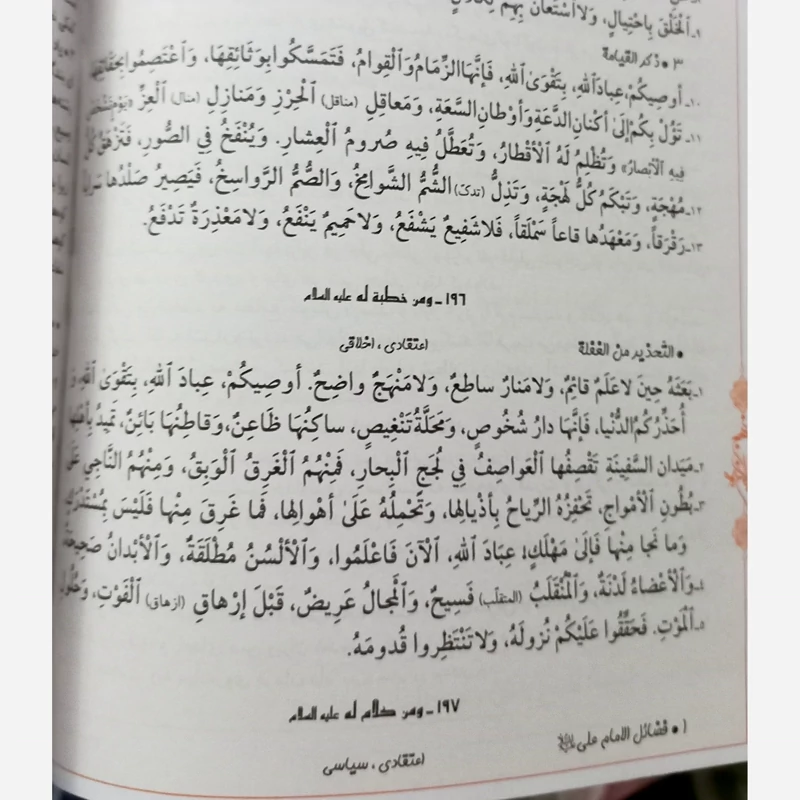 ١ـ ٱلْخَلْقَ بِاحْتِيالٍ، وَلَا ٱسْتَعانَ بِهِمْ لِكَلالٍ.
٣ • ذكر القيامة
١٠ـ أوصِيكُمْ، عِبادَ ٱللهِ، بِتَقْوَى ٱللهِ، فَإِنَّهَا ٱلزِّمَامُ وَٱلْقِوامُ، فَتَمَسَّكُوا بِوَثَائِقِهَا، وَٱعْتَصِمُوا بِحَقَائِقِهَا
١١ـ تَؤُلْ بِكُمْ إِلىٰ أكْنانِ الدَّعَةِ وَأوْطانِ السَّعَةِ، وَمَعاقِلِ (مناقل) ٱلْحِرْزِ وَمَنازِلِ (منال) ٱلْعِزِّ «يَوْمٍ تَشْخَصُ
فِيهِ ٱلْأَبْصارُ» وَتُظْلِمُ لَهُ ٱلْأَقْطارُ، وَتُعَطَّلُ فِيهِ صُرومُ ٱلْعِشارِ. وَيُنْفَخُ فِي الصُّورِ، فَتَزْهَقُ كُلُّ
١٢ـ مُهْجَةٍ، وَتَبْكَمُ كُلُّ لَهْجَةٍ، وَتَذِلُّ (تدكّ) الشُّمُّ الشَّوامِخُ، وَالصُّمُّ الرَّواسِخُ، فَيَصِيرُ صَلْدُها سَراباً
١٣ـ رَقْرَقاً، وَمَعْهَدُها قاعاً سَمْلَقاً، فَلا شَفِيعٌ يَشْفَعُ، وَلا حَمِيمٌ يَنْفَعُ، وَلا مَعْذِرَةٌ تَدْفَعُ.
١٩٦ـ ومن خطبة له عليه السلام
اعتقادی، اخلاقی
• التحذير من الغفلة
١ـ بَعَثَهُ حِينَ لا عَلَمٌ قائِمٌ، وَلا مَنارٌ ساطِعٌ، وَلا مَنْهَجٌ واضِحٌ. أوصِيكُمْ، عِبادَ ٱللهِ، بِتَقْوَى ٱللهِ، وَ
أُحَذِّرُكُمُ الدُّنْيا، فَإِنَّها دارُ شُخُوصٍ، وَمَحَلَّةُ تَنْغِيصٍ، ساكِنُهَا ظَاعِنٌ، وَقاطِنُهَا بَائِنٌ، تَمِيدُ بِأَهْلِها
٢ـ مَيَدانَ السَّفِينَةِ تَقْصِفُها ٱلْعَواصِفُ فِي لُجَجِ ٱلْبِحارِ، فَمِنْهُمُ ٱلْغَرِقُ ٱلْوَبِقُ، وَمِنْهُمُ النَّاجِي عَلَى
٣ـ بُطُونِ ٱلْأَمْواجِ، تَحْفِزُهُ الرِّياحُ بِأَذْيالِها، وَتَحْمِلُهُ عَلَىٰ أهْوالِها، فَما غَرِقَ مِنْها فَلَيْسَ بِمُسْتَدْرَكٍ
وَما نَجا مِنْها فَإِلىٰ مَهْلَكٍ! عِبادَ ٱللهِ، ٱلْآنَ فَاعْلَمُوا، وَٱلْأَلْسُنُ مُطْلَقَةٌ، وَٱلْأَبْدانُ صَحِيحَةٌ
٤ـ وَٱلْأَعْضاءُ لَدْنَةٌ، وَٱلْمُنْقَلَبُ (المتقلّب) فَسِيحٌ، وَٱلْمَجالُ عَرِيضٌ، قَبْلَ إرْهاقِ (ازهاق) ٱلْفَوْتِ، وَحُلُولِ
٥ـ ٱلْمَوْتِ. فَحَقِّقُوا عَلَيْكُمْ نُزولَهُ، وَلا تَنْتَظِروا قُدومَهُ.
١٩٧ـ ومن كلام له عليه السلام
١ • فضائل الامام علي
اعتقادی، سیاسی